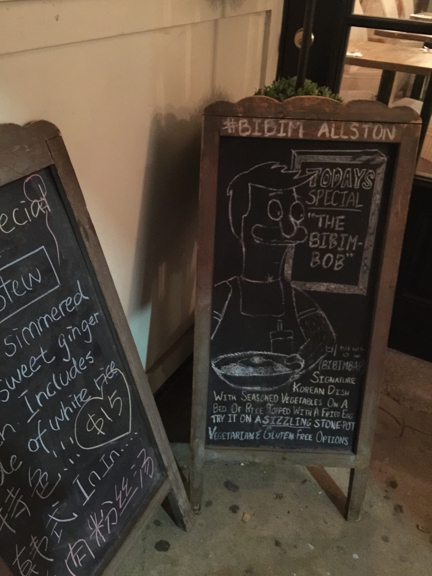 #BIBIM ALLSTON
TODAYS
SPECIAL
"THE
BIBIM-
BOB"
SIGNATURE
KOREAN DISH
WITH SEASONED VEGETABLES ON A
BED OF RICE TOPPED WITH A FRIED EGG
TRY IT ON A SIZZLING STONE-POT
VEGETARIAN & GLUTEN FREE OPTIONS
ecial
stew
simmered
sweet ginger
n Includes
de of white rice
$15
式 In In...
肉粉丝汤